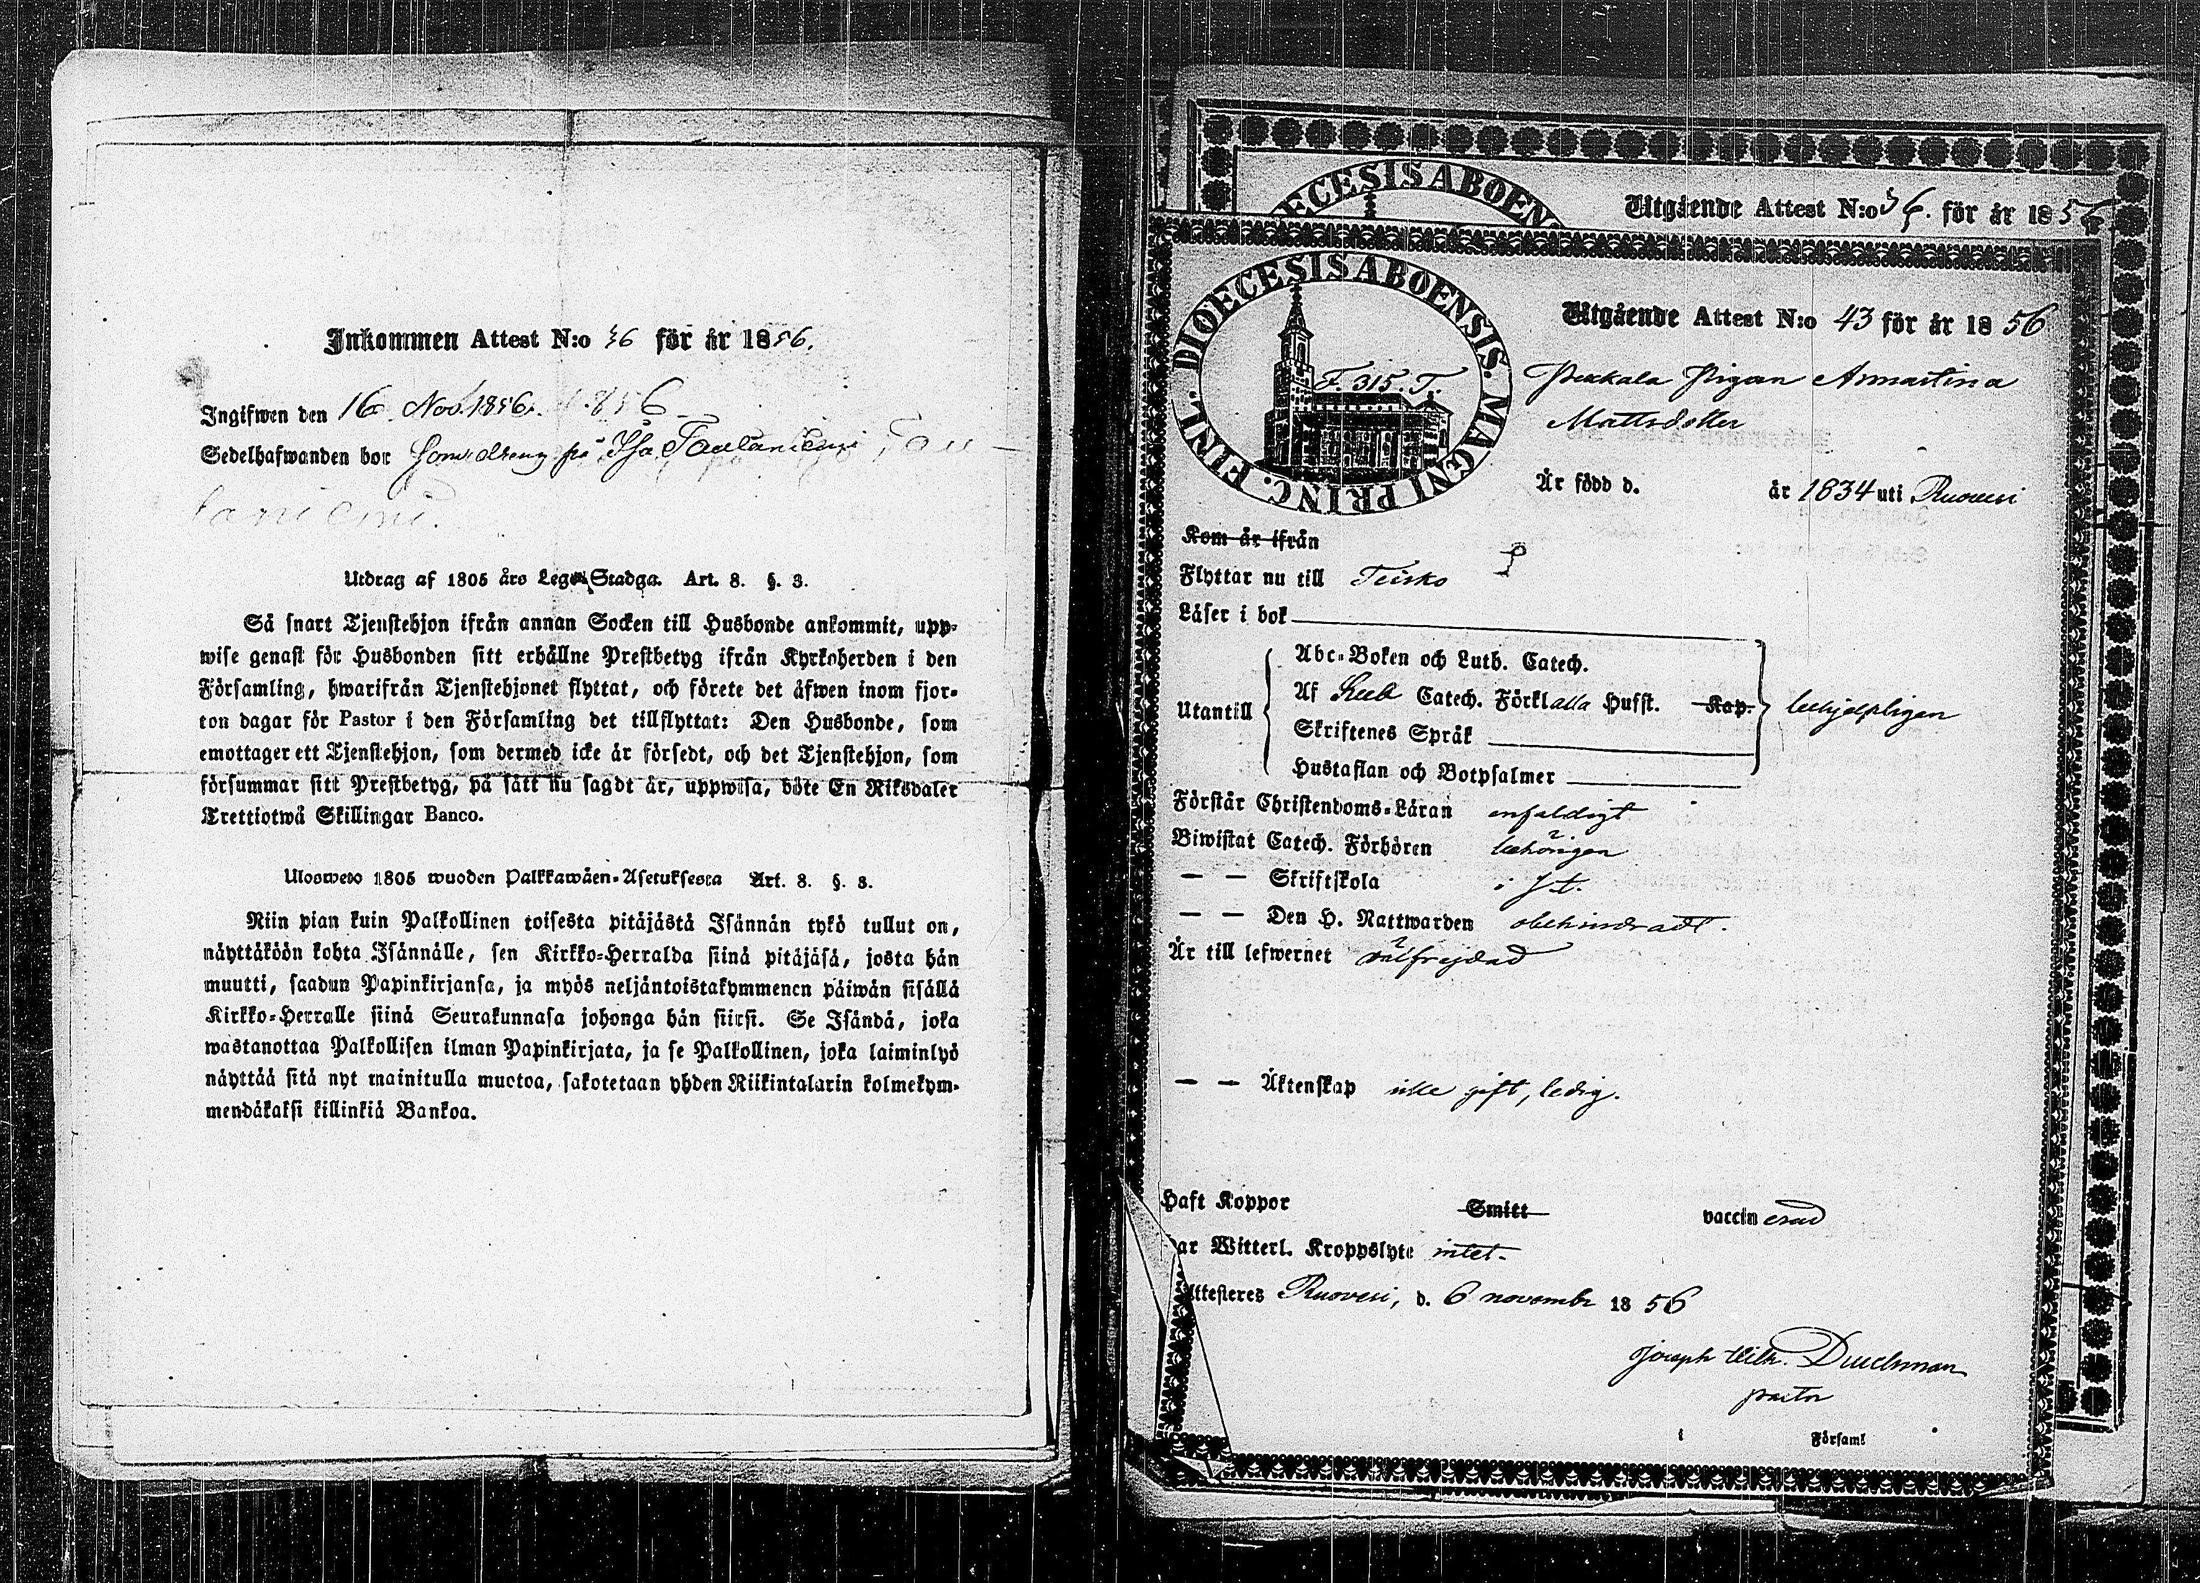 Inkommen Attest N:o 36 för år 1856.
Ingifwen den 16 Nov. 1856. 1856
Sedelhafwanden bor som dreng på Isa Taulaniemi Tau-
laniemi.
Utdrag af 1805 års Lego Stadga. Art. 8. §. 3.
Så snart Tjenstehjon ifrån annan Socken till Husbonde ankommit, upp-
wise genast för Husbonden sitt erhållne Prestbetyg ifrån Kyrkoherden i den
Församling, hwarifrån Tjenstehjonet flyttat, och förete det äfwen inom fjor-
ton dagar för Pastor i den Församling det tillflyttat: Den Husbonde, som
emottager ett Tjenstehjon, som dermed icke är försedt, och det Tjenstehjon, som
försummar sitt Prestbetyg, på sätt nu sagdt är, uppwisa, böte En Riksdaler
Trettiotwå Skillingar Banco.
Ulosweto 1805 wuoden Palkkawäen-Asetuksesta Art. 8. §. 3.
Niin pian kuin Palkollinen toisesta pitäjästä Isännän tykö tullut on,
näyttäköön kohta Isännälle, sen Kirkko-Herralda siinä pitäjäsä, josta hän
muutti, saadun Papinkirjansa, ja myös neljäntoistakymmenen päiwän sisällä
Kirkko-Herralle siinä Seurakunnasa johonga hän siirsi. Se Isändä, joka
wastanottaa Palkollisen ilman Papinkirjata, ja se Palkollinen, joka laiminlyö
näyttää sitä nyt mainitulla muotoa, sakotetaan yhden Riikintalarin kolmekym-
mendäkaksi killinkiä Bankoa.
ECESIS ABOEN
Utgående Attest N:o 36. för år 1856
DIOECESIS ABOENSIS. MAGNI PRINC. FINL.
F. 315. T.
Utgående Attest N:o 43 för år 1856
Pekkala Pigan Annastina
Mattsdotter
Är född d. år 1834 uti Ruovesi
Kom är ifrån
Flyttar nu till Teisko
Läser i bok
Utantill
Abc-Boken och Luth. Catech.
Af Seeb Catech. Förkl alla Hufst. Kap.
Skriftenes Språk
Hustaflan och Botpsalmer
behjelpligen
Förstår Christendoms-Läran enfaldigt
Biwistat Catech. Förhören behörigen
— — Skriftskola i J. t.
— — Den H. Nattwarden obehindradt.
Är till lefwernet välfrejdad
— — Äktenskap icke gift, ledig.
Haft Koppor Smitt vaccinerad
ar Witterl. Kroppslyte intet.
Attesteres Ruovesi, d. 6 novembr 1856
Joseph Wilh. Durchman
pastor
i Församl